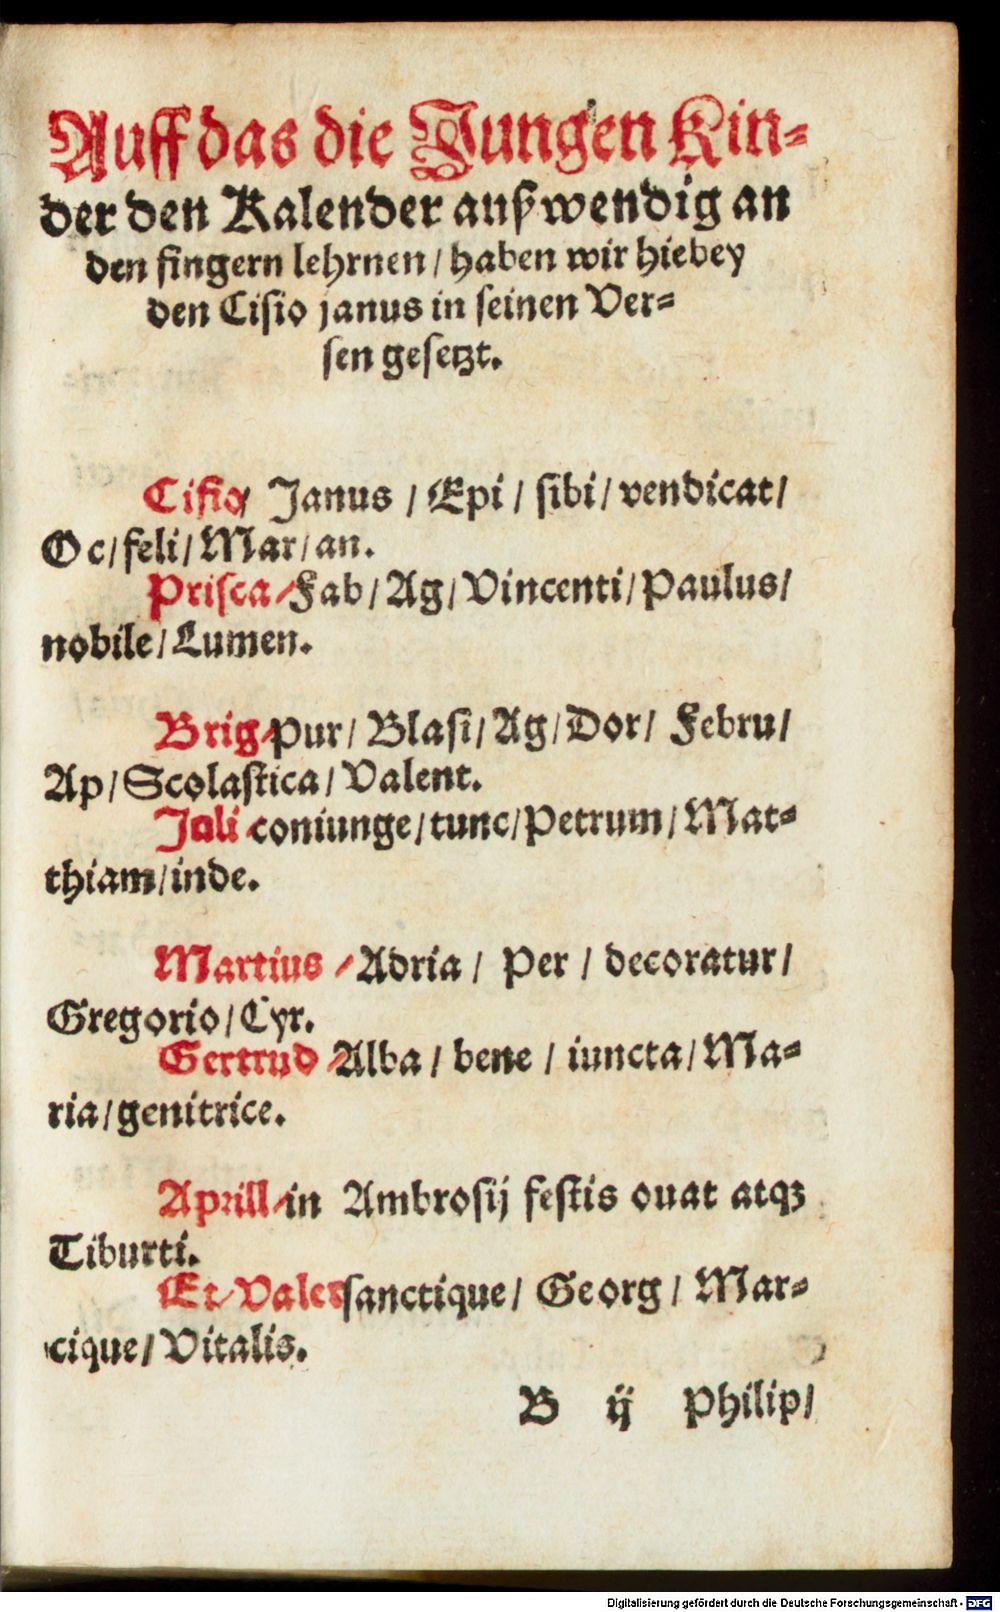 Auff das die Jungen Kin-
der den Kalender außwendig an
den fingern lehrnen / haben wir hiebey
den Cisio janus in seinen Ver-
sen gesetzt.
Cisio / Janus / Epi / sibi / vendicat /
Oc / feli / Mar / an.
Prisca / Fab / Ag / Vincenti / Paulus /
nobile / Lumen.
Brig / Pur / Blasi / Ag / Dor / Febru /
Ap / Scolastica / Valent.
Juli coniunge / tunc / Petrum / Mat-
thiam / inde.
Martius / Adria / Per / decoratur /
Gregorio / Cyr.
Gertrud / Alba / bene / iuncta / Ma-
ria / genitrice.
Aprill / in Ambrosij festis ouat atqꝫ
Tiburti.
Et / Valer sanctique / Georg / Mar-
cique / Vitalis.
B ij Philip /
Digitalisierung gefördert durch die Deutsche Forschungsgemeinschaft - DFG